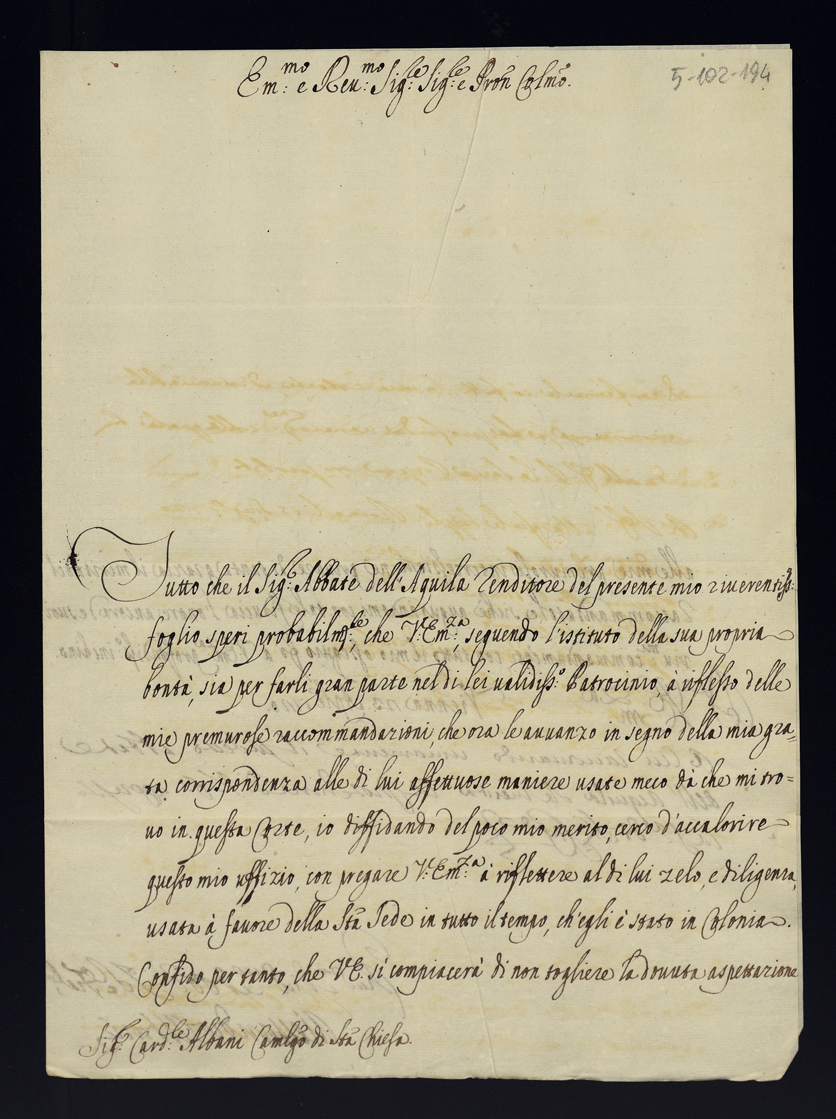 Em:mo e Reu:mo Sig:re Sig:re e Pron Colmo.
5-102-194
Tutto che il Sig:r Abbate dell'Aquila Renditore del presente mio riuerentiss:o
foglio, speri probabilm:te, che V:Em:za, seguendo l'istituto della sua propria
bontà, sia per farli gran parte nel di lei ualidiss:o Patrocinio, à riflesso delle
mie premurose raccommandazioni, che ora le auuanzo in segno della mia gra=
ta corrispondenza alle di lui affettuose maniere usate meco dà che mi tro=
uo in questa Corte, io diffidando del poco mio merito, cerco d'accalorire
questo mio uffizio, con pregare V:Em:za à riflettere al di lui zelo, e diligenza,
usata à fauore della Sta Sede in tutto il tempo, ch'egli è stato in Colonia.
Confido per tanto, che V.E. si compiacerà di non togliere la douuta aspettazione
Sig:r Card:le Albani Camlgo di Sta Chiesa.